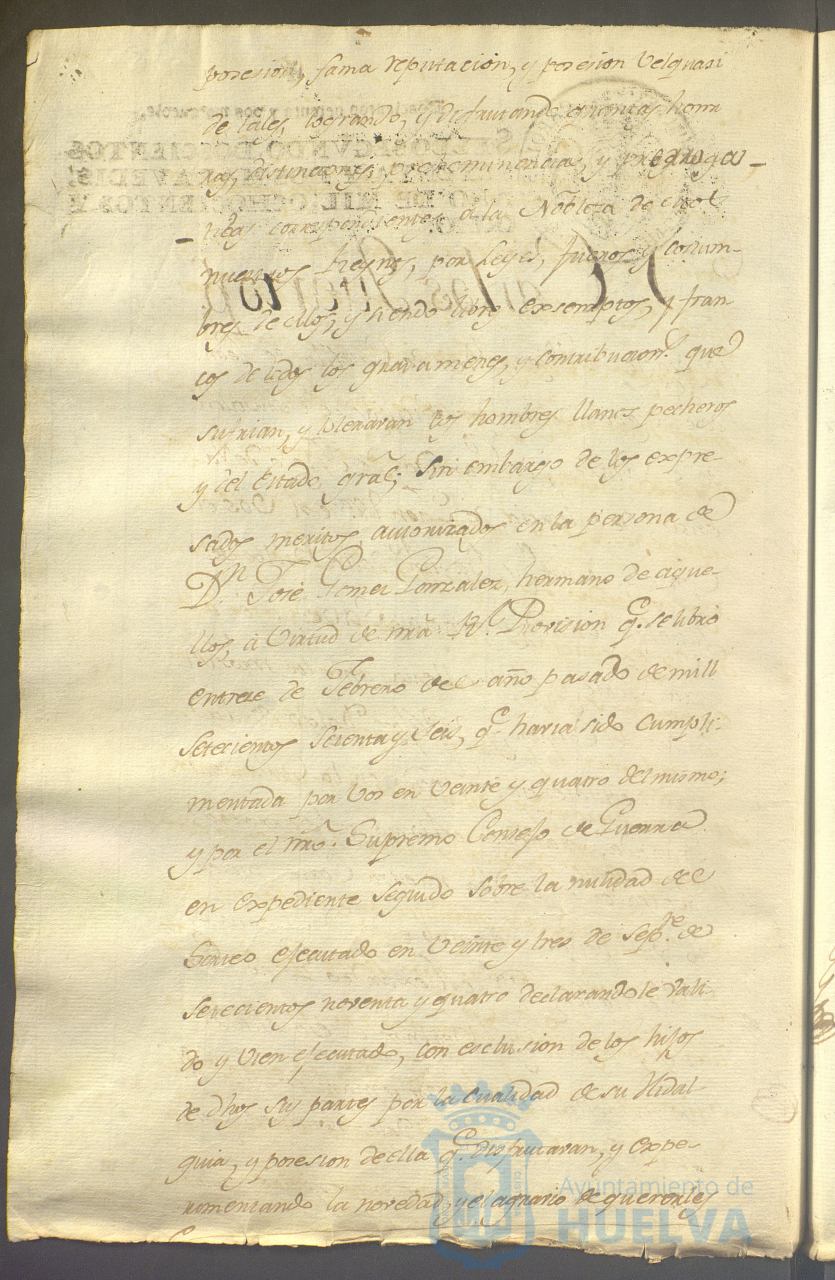 posesion, fama reputacion, y posesion velquasi
de tales, logrando, y disfrutando quantas honrra
ras, distinciones, preheminencias, y prerrogati
vas correspondientes a la Nobleza de estos
nuestros Reynos, por Leyes, fueros y costum-
bres de ellos, y siendo libres exsemptos, y fran-
cos de todos los gravamenes, y contribucion.s que
sufrian, y toleraran los hombres llanos pecheros
y del Estado gral; Sin embargo de los expre-
sados meritos, autorizados en la persona de
Dn. José Gomez Gonzalez, hermano de aque-
llos, á virtud de nrã Rl. Provision q.e se libró
entreze de Febrero del año pasado de mill
setecientos setenta y seis, q.e havia sido cumpli-
mentada por vos en veinte y quatro del mismo;
y por el nrõ. Supremo Consejo de Guerra
en expediente seguido sobre la nulidad del
Sorteo ejecutado en veinte y tres de Sep.re de
setecientos noventa y quatro declarandole vali
do y vien ejecutado, con esclusion de los hijos
de dhos sus partes por la cualidad de su Hidal
guia, y posesion de ella q.e disfrutaran, y expe-
rimentando la novedad, y el agravio de quererles
Ayuntamiento de
HUELVA